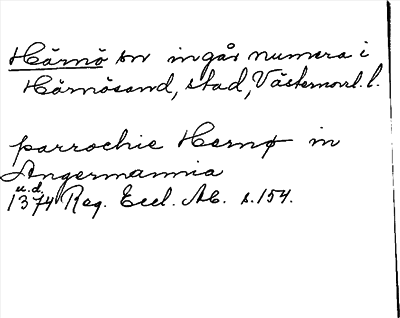 Härnö sn ingår numera i
Härnösand, stad, Västernorrl. l.
parrochie Hernø in
Angermannia
u.d.
1374 Reg. Eccl. Ab. s. 154.